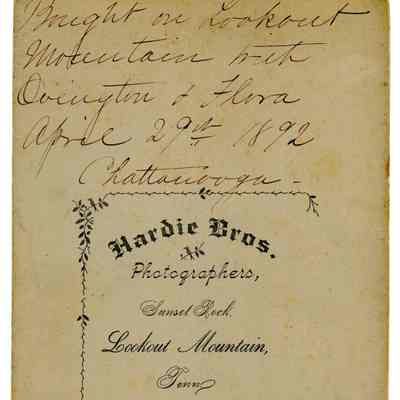 Bought on Lookout
Mountain with
Ovington & Flora
April 29th 1892
Chattanooga -
Hardie Bros.
Photographers,
Sunset Rock,
Lookout Mountain,
Tenn